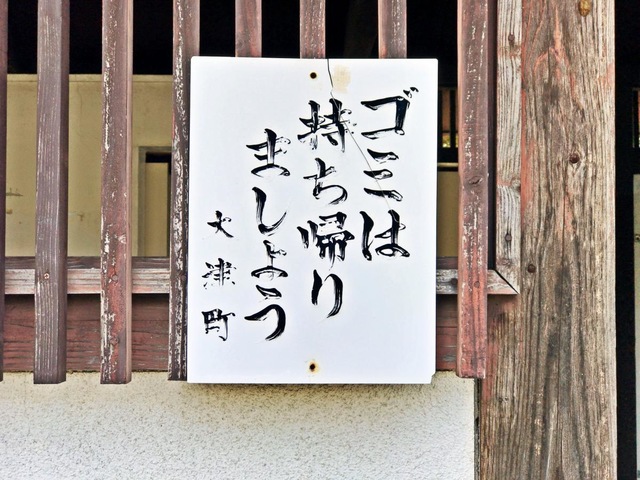 ゴミは
持ち帰り
ましょう
大津町